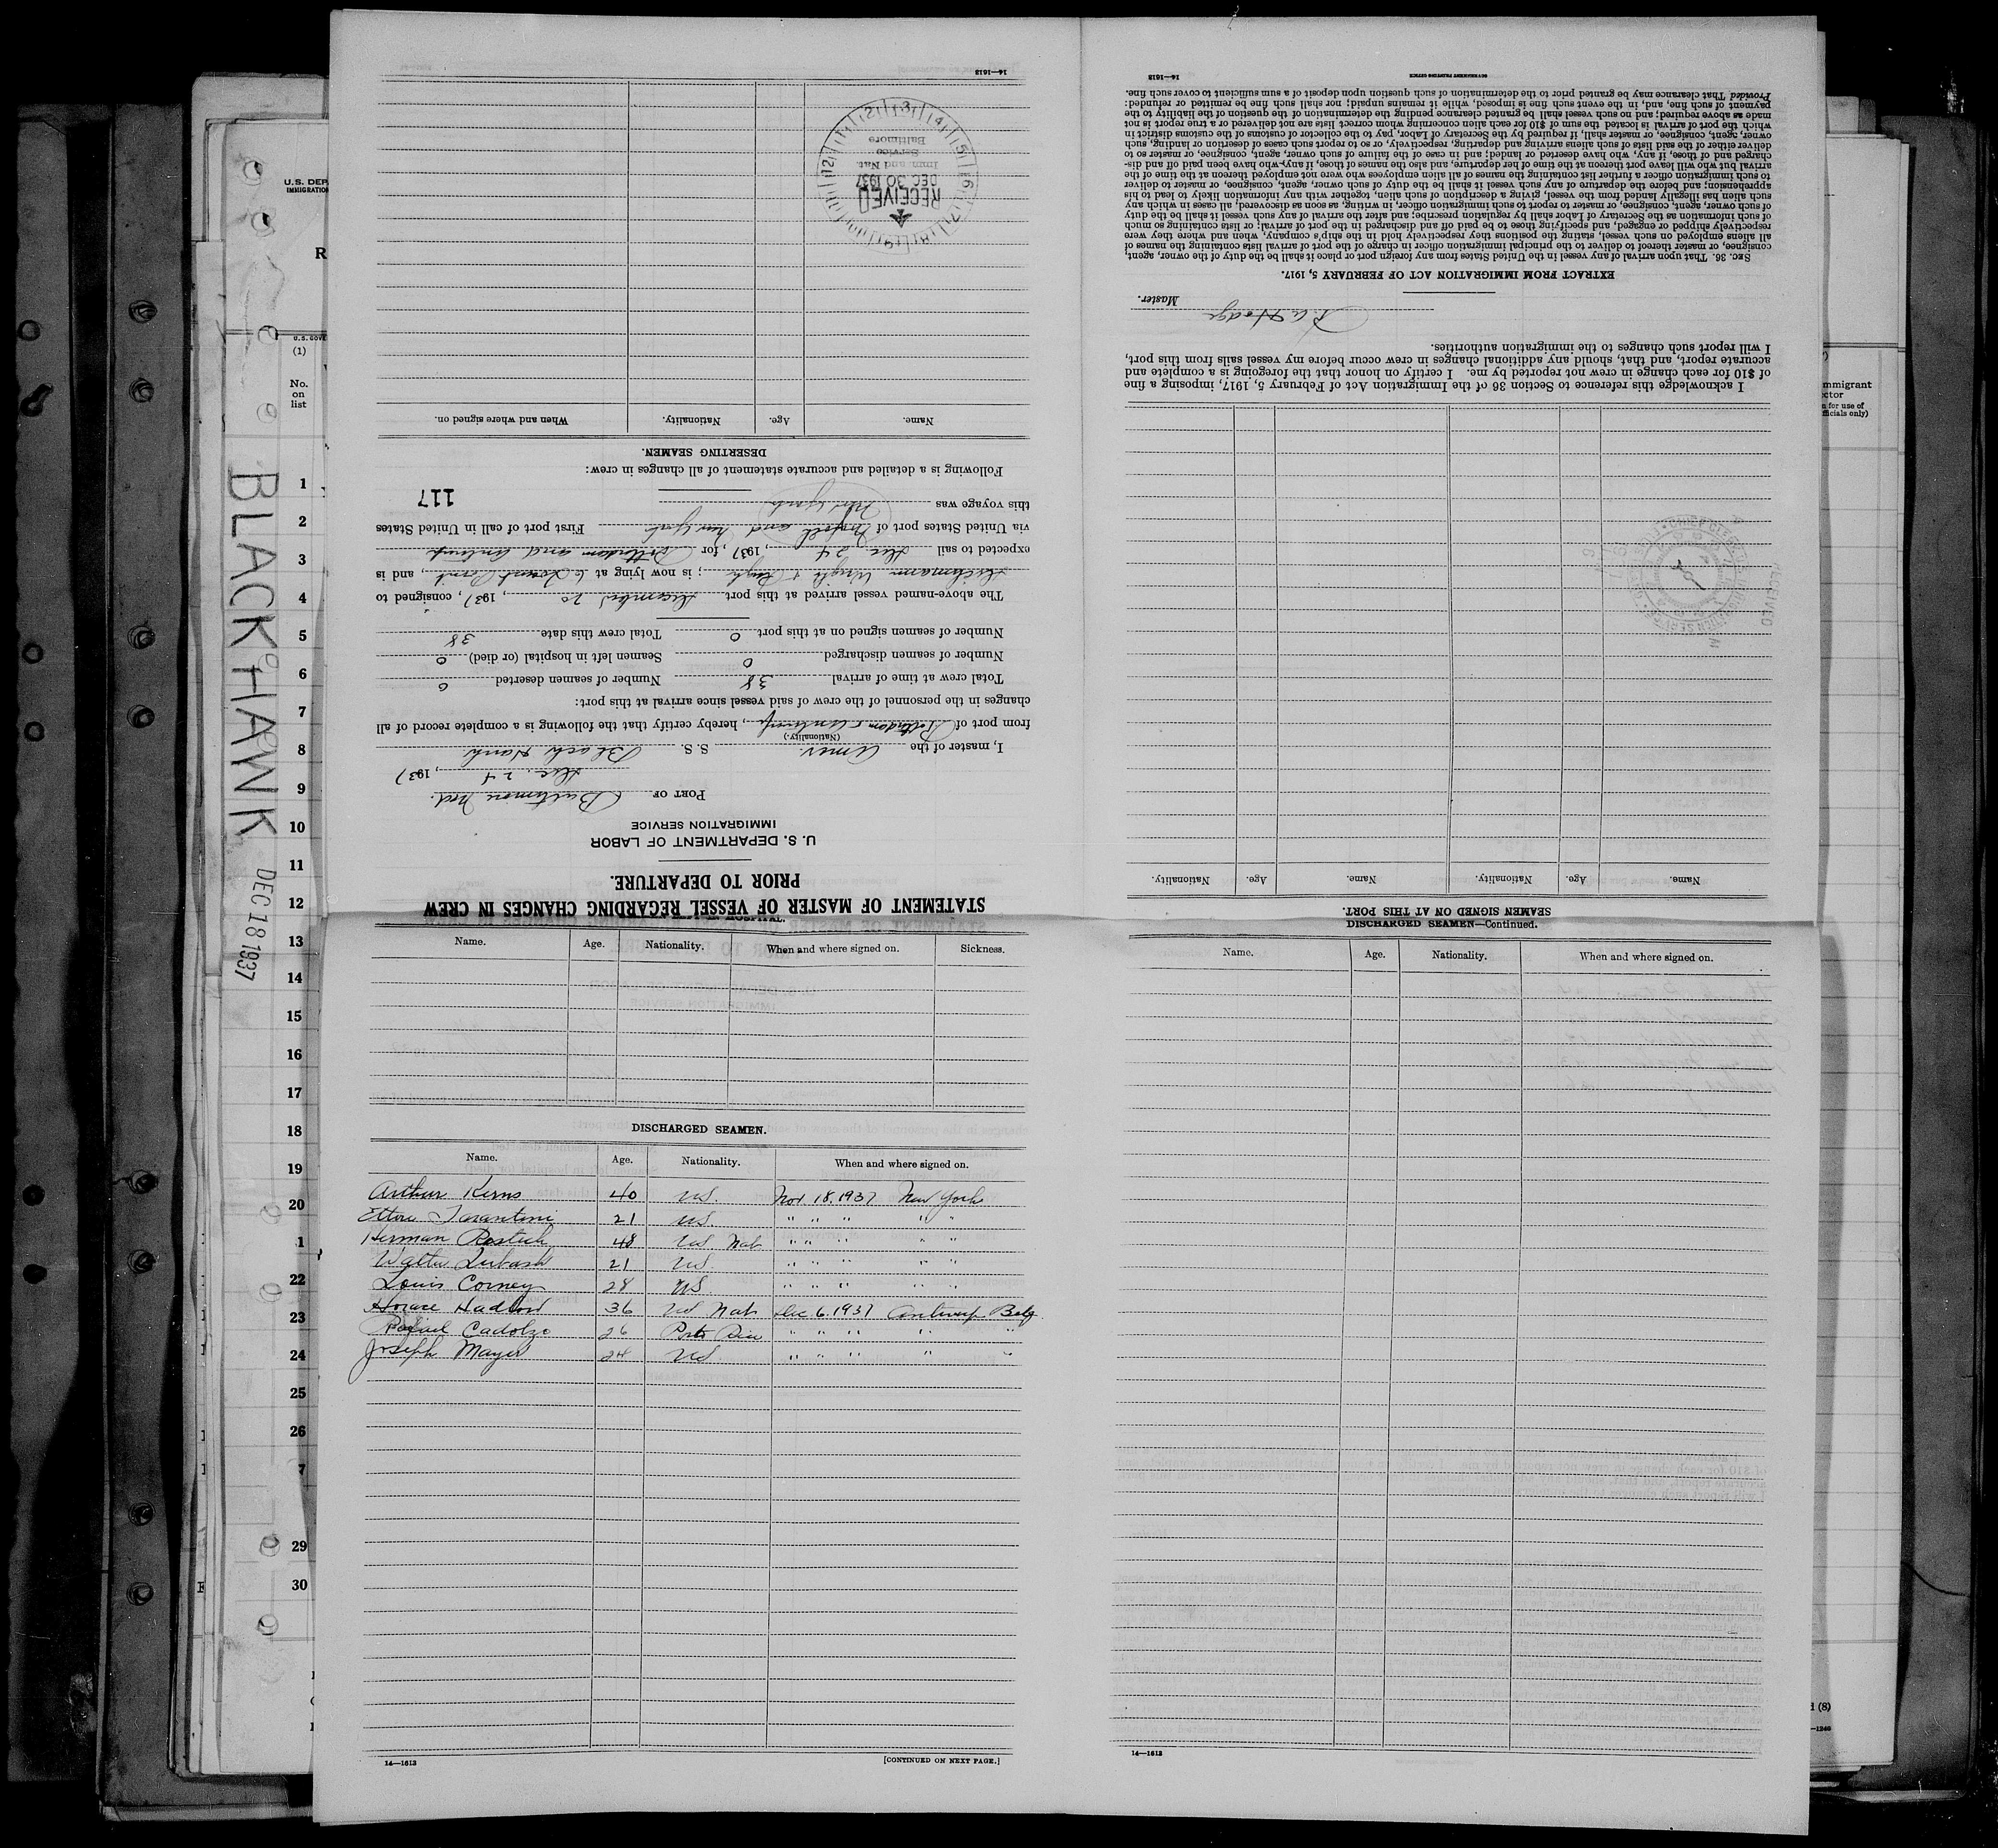 BLACK HAWK DEC 18 1937
U.S. DEP
IMMIGRATION
R
U.S. GOVE
(1)
No.
on
list
1
2
3
4
5
6
7
8
9
10
11
12
13
14
15
16
17
18
19
20
1
22
23
24
25
26
7
29
30
STATEMENT OF MASTER OF VESSEL REGARDING CHANGES IN CREW
PRIOR TO DEPARTURE.
U. S. DEPARTMENT OF LABOR
IMMIGRATION SERVICE
PORT OF Baltimore Md.
Dec. 24, 1937
I, master of the Amer. S. S. Black Hawk
(Nationality.)
from port of Rotterdam & Antwerp, hereby certify that the following is a complete record of all
changes in the personnel of the crew of said vessel since arrival at this port:
Total crew at time of arrival 38 Number of seamen deserted 0
Number of seamen discharged 0 Seamen left in hospital (or died) 0
Number of seamen signed on at this port 0 Total crew this date 38
The above-named vessel arrived at this port December 20, 1937, consigned to
Wright & Pugh; is now lying at 6 Locust Point, and is
expected to sail Dec 24, 1937, for Rotterdam and Antwerp
via United States port of Norfolk and New York First port of call in United States
this voyage was New York
117
Following is a detailed and accurate statement of all changes in crew:
DESERTING SEAMEN.
Name. Age. Nationality. When and where signed on.
RECEIVED
DEC 30 1937
Imm and Nat
Service
Baltimore
14—1613
SEAMEN SIGNED ON AT THIS PORT.
Name. Age. Nationality. Name. Age. Nationality.
I acknowledge this reference to Section 36 of the Immigration Act of February 5, 1917, imposing a fine
of $10 for each change in crew not reported by me. I certify on honor that the foregoing is a complete and
accurate report, and that, should any additional changes in crew occur before my vessel sails from this port,
I will report such changes to the immigration authorities.
Hodge
Master.
EXTRACT FROM IMMIGRATION ACT OF FEBRUARY 5, 1917.
SEC. 36. That upon arrival of any vessel in the United States from any foreign port or place it shall be the duty of the owner, agent,
consignee, or master thereof to deliver to the principal immigration officer in charge of the port of arrival lists containing the names of
all aliens employed on such vessel, stating the positions they respectively hold in the ship's company, when and where they were
respectively shipped or engaged, and specifying those to be paid off and discharged in the port of arrival; or lists containing so much
of such information as the Secretary of Labor shall by regulation prescribe; and after the arrival of any such vessel it shall be the duty
of such owner, agent, consignee, or master to report to such immigration officer, in writing, as soon as discovered, all cases in which any
such alien has illegally landed from the vessel, giving a description of such alien, together with any information likely to lead to his
apprehension; and before the departure of any such vessel it shall be the duty of such owner, agent, consignee, or master to deliver
to such immigration officer a further list containing the names of all alien employees who were not employed thereon at the time of the
arrival but who will leave port thereon at the time of her departure, and also the names of those, if any, who have been paid off and dis-
charged and of those, if any, who have deserted or landed; and in case of the failure of such owner, agent, consignee, or master so to
deliver either of the said lists of such aliens arriving and departing, respectively, or so to report such cases of desertion or landing, such
owner, agent, consignee, or master shall, if required by the Secretary of Labor, pay to the collector of customs of the customs district in
which the port of arrival is located the sum of $10 for each alien concerning whom correct lists are not delivered or a true report is not
made as above required; and no such vessel shall be granted clearance pending the determination of the question of the liability to the
payment of such fine, and, in the event such fine is imposed, while it remains unpaid; nor shall such fine be remitted or refunded:
Provided That clearance may be granted prior to the determination of such question upon deposit of a sum sufficient to cover such fine.
GOVERNMENT PRINTING OFFICE 14—1613
HOSPITAL.
Name. Age. Nationality. When and where signed on. Sickness.
DISCHARGED SEAMEN.
Name. Age. Nationality. When and where signed on.
Arthur Kerns 40 US. Nov 18, 1937 New York
Ettore Tarantini 21 US " " " " "
Herman 48 US Nat " " " " "
Walter Lubash 21 US " " " " "
Louis Corney 28 US " " " " "
Horace Hadlow 36 US Nat Dec 6, 1937 Antwerp Belg
Rafael Cadolzo 26 Porto Rico " " " " "
Joseph Mayer 24 US " " " " "
14—1613 [CONTINUED ON NEXT PAGE.]
DISCHARGED SEAMEN—Continued.
Name. Age. Nationality. When and where signed on.
14—1613
mmigrant
ctor
n for use of
fficials only)
(8)
—1240